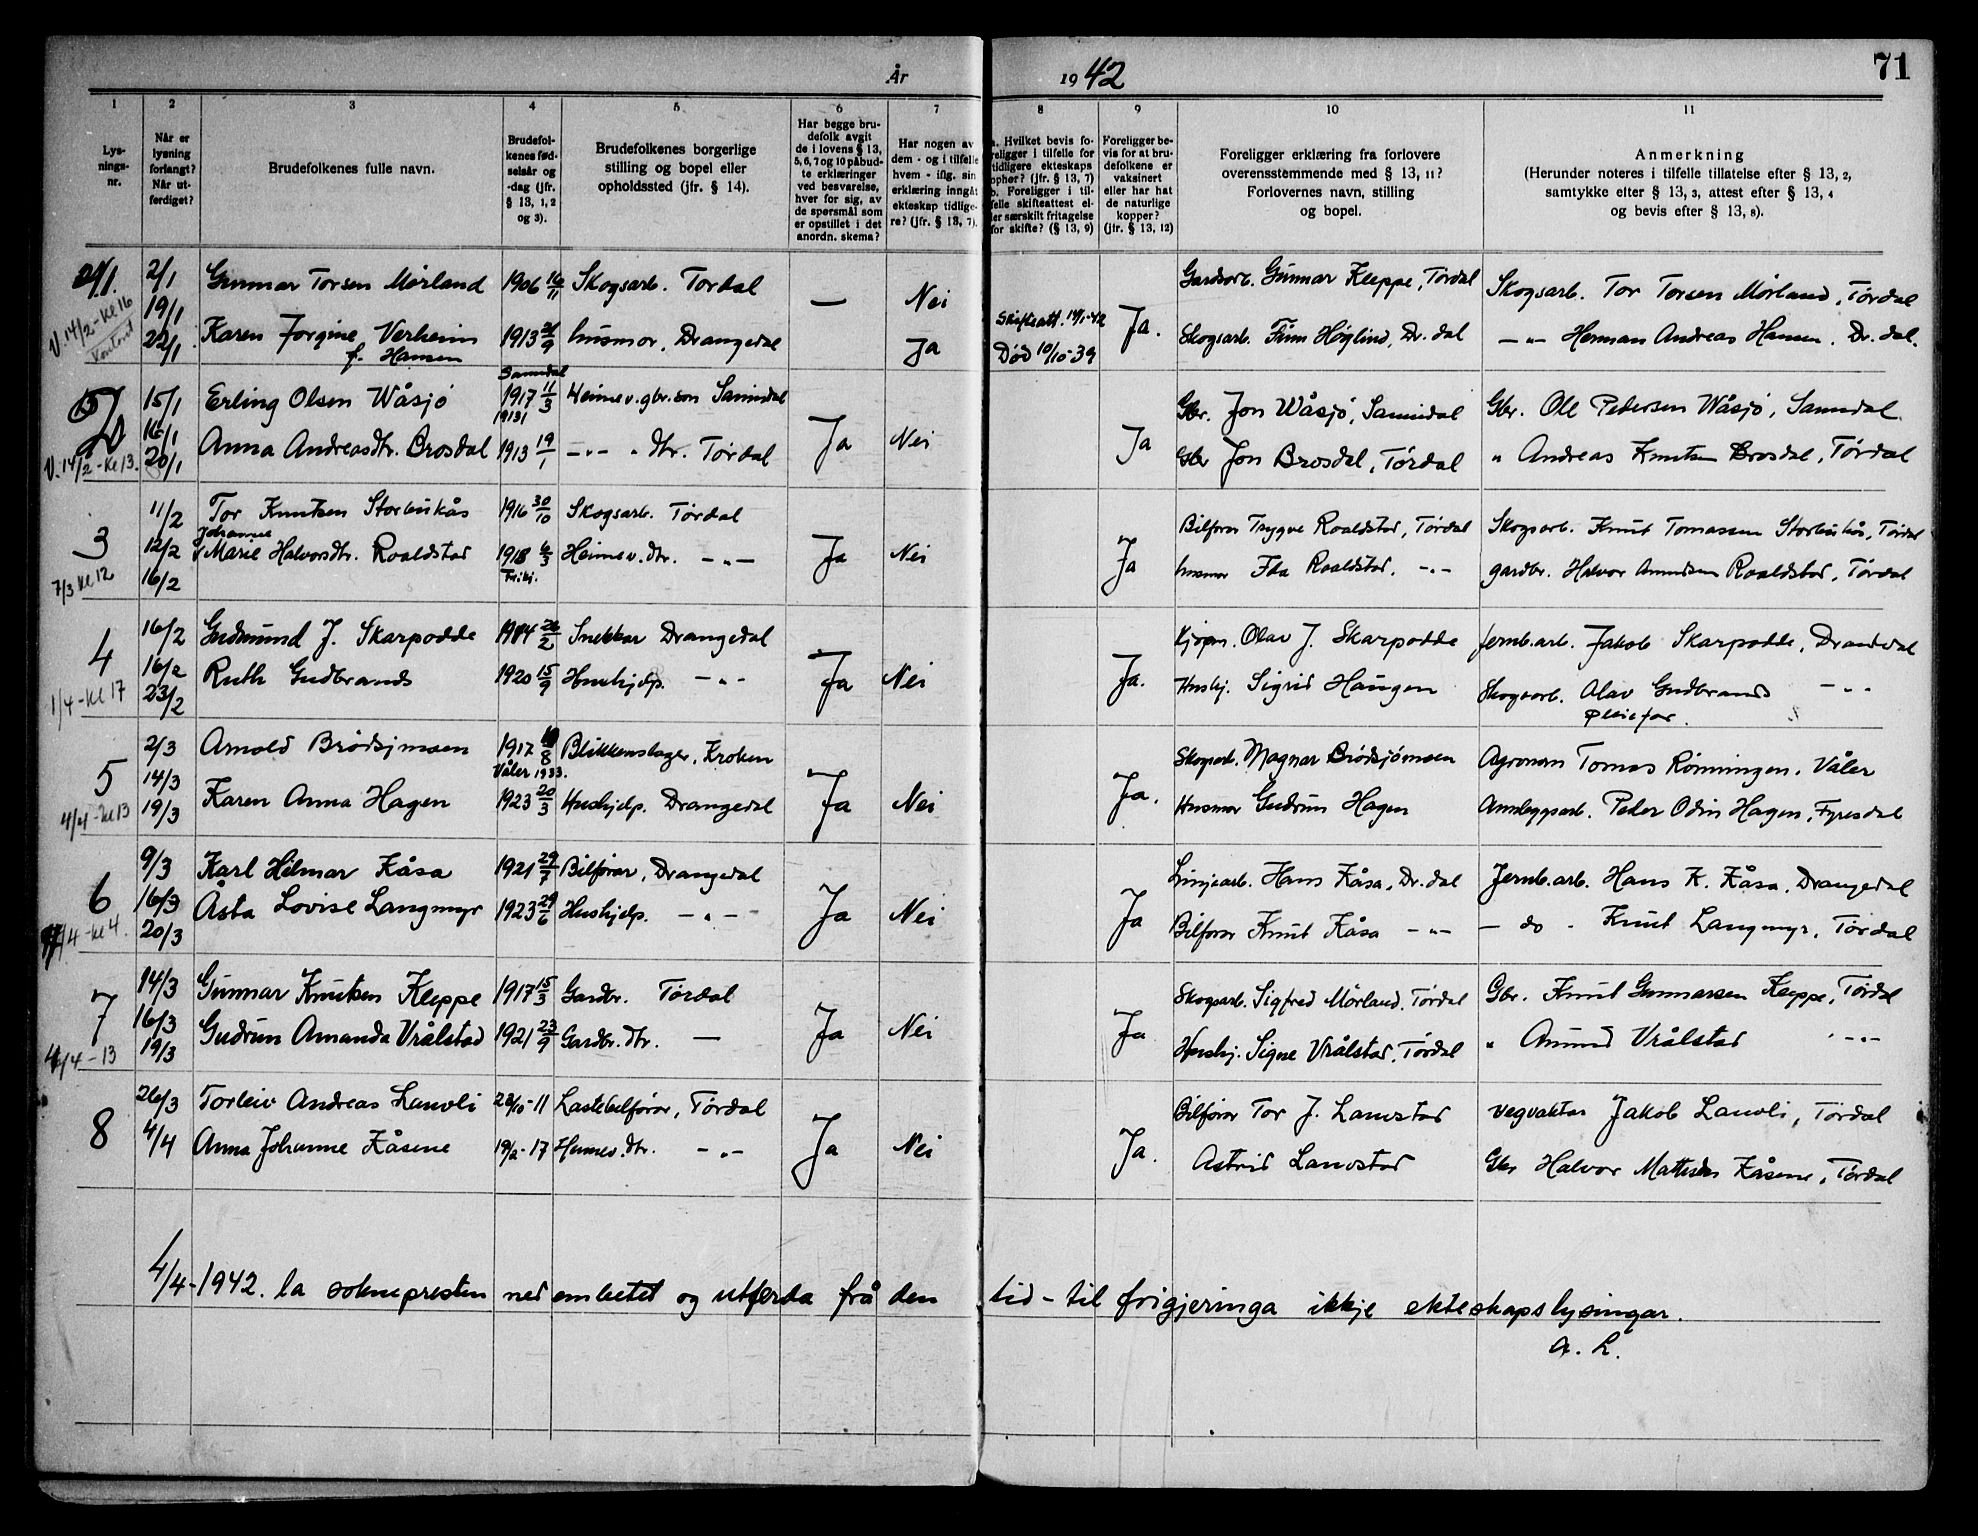 År 1942
71
1 2 3 4 5 6 7 8 9 10 11
Lysnings-nr.
Når er lysning forlangt? Når utferdiget?
Brudefolkenes fulle navn.
Brudefolkenes fødselsår og -dag (jfr. § 13, 1, 2 og 3).
Brudefolkenes borgerlige stilling og bopel eller opholdssted (jfr. § 14).
Har begge brudefolk avgit de i lovens § 13, 5, 6, 7 og 10 påbudte erklæringer ved besvarelse, hver for sig, av de spørsmål som er opstillet i det anordn. skema?
Har nogen av dem - og i tilfelle hvem - iflg. sin erklæring inngått ekteskap tidligere? (jfr. § 13, 7).
a. Hvilket bevis foreligger i tilfelle for tidligere ekteskaps ophør? (jfr. § 13, 7)
b. Foreligger i tilfelle skifteattest eller særskilt fritagelse for skifte? (§ 13, 9)
Foreligger bevis for at brudefolkene er vaksinert eller har hat de naturlige kopper? (jfr. § 13, 12)
Foreligger erklæring fra forlovere overensstemmende med § 13, 11? Forlovernes navn, stilling og bopel.
Anmerkning
(Herunder noteres i tilfelle tillatelse efter § 13, 2, samtykke efter § 13, 3, attest efter § 13, 4 og bevis efter § 13, 8).
2/1 Gunnar Torsen Mørland 1906 16/11 Skogsarb. Tørdal — Nei Gardarb. Gunnar Kleppe, Tørdal Skogsarb. Tor Torsen Mørland, Tørdal
19/1
V. 14/2 - Kl 16 Kontoret
22/1 Karen Jorgine Verheim 1913 21/9 husmor, Drangedal Ja Skifteatt. 19/1-42 Ja. Skogsarb. Finn Høglind, Dr. dal —"— Herman Andreas Hansen. Dr. dal.
f. Hansen
Død 10/10-39
Sanndal
2 15/1 Erling Olsen Wåsjø 1917 11/3 Heimev. gbr. son Sanndal Ja Nei Ja Gbr. Jon Wåsjø, Sanndal Gbr. Ole Pedersen Wåsjø, Sanndal
1931
16/1
V. 14/2 - Kl 13. 20/1 Anna Andreasdtr. Brosdal 1913 19/1 —"— " dtr. Tørdal Gbr Jon Brosdal, Tørdal " Andreas Knutsen Brosdal, Tørdal
3 11/2 Tor Knutsen Storbukås 1916 30/10 Skogsarb. Tørdal Ja Nei Ja Bilførar Trygve Roaldstad, Tørdal Skogsarb. Knut Tomassen Storbukås, Tørdal
Johanne
12/2 Marie Halvorsdtr. Roaldstad 1918 6/3 Heimev. dtr. —"— husmor Ida Roaldstad, —"— gardbr. Halvor Amundsen Roaldstad, Tørdal
7/3 Kl 12 16/2
4 16/2 Gudmund J. Skarpodde 1914 26/2 Snekkar Drangedal Ja Nei Ja. Kjøpm. Olav J. Skarpodde Jernb.arb. Jakob Skarpodde, Drangedal
16/2 Ruth Gudbrands 1920 15/9 Hushjelp. —"— Hushj. Sigrid Haugen Skogsarb. Olav Gudbrands —"—
1/4 - Kl 17 23/2
Pleiefar.
5 2/3 Arnold Brødsjmoen 1917 10/8 Blikkenslager, Kroken Ja Nei Ja. Skogsarb. Magnar Brødsjømoen Agronom Tomas Rønningen. Våler
Våler 1933.
14/3
4/4 - Kl 13 19/3 Karen Anna Hagen 1923 20/3 Hushjelp. Drangedal Husmor Gudrun Hagen Annleggsarb. Peder Odin Hagen, Fyresdal
6 9/3 Karl Hilmar Kåsa 1921 29/7 Bilførar, Drangedal Ja Nei Ja Linjearb. Hans Kåsa, Dr. dal Jernb.arb. Hans K. Kåsa, Drangedal
16/3 Åsta Lovise Langmyr 1923 29/6 Hushjelp. —"— Bilførar Knut Kåsa —"— — do - Knut Langmyr, Tørdal
/4 - Kl 4. 20/3
7 14/3 Gunnar Knutsen Kleppe 1917 15/3 Gardbr. Tørdal Ja Nei Ja Skogsarb. Sigfred Mørland, Tørdal Gbr. Knut Gunnarsen Kleppe, Tørdal
16/3 Gudrun Amanda Vrålstad 1921 23/9 Gardbr. dtr. — Hushj. Signe Vrålstad, Tørdal " Amund Vrålstad —"—
4/4 - 13 19/3
8 26/3 Torleiv Andreas Lauvli 23/10-11 Lastebilførar, Tørdal Ja Nei Ja. Bilførar Tor J. Lauvstad Vegvaktar Jakob Lauvli, Tørdal
4/4 Anna Johanne Kåsene 19/2-17 Heimev. dtr. —"— Astrid Lauvstad Gbr Halvor Kåsene, Tørdal
4/4-1942. la soknepresten ned embetet og utferda frå den tid - til frigjeringa ikkje ekteskapslysingar.
A. L.